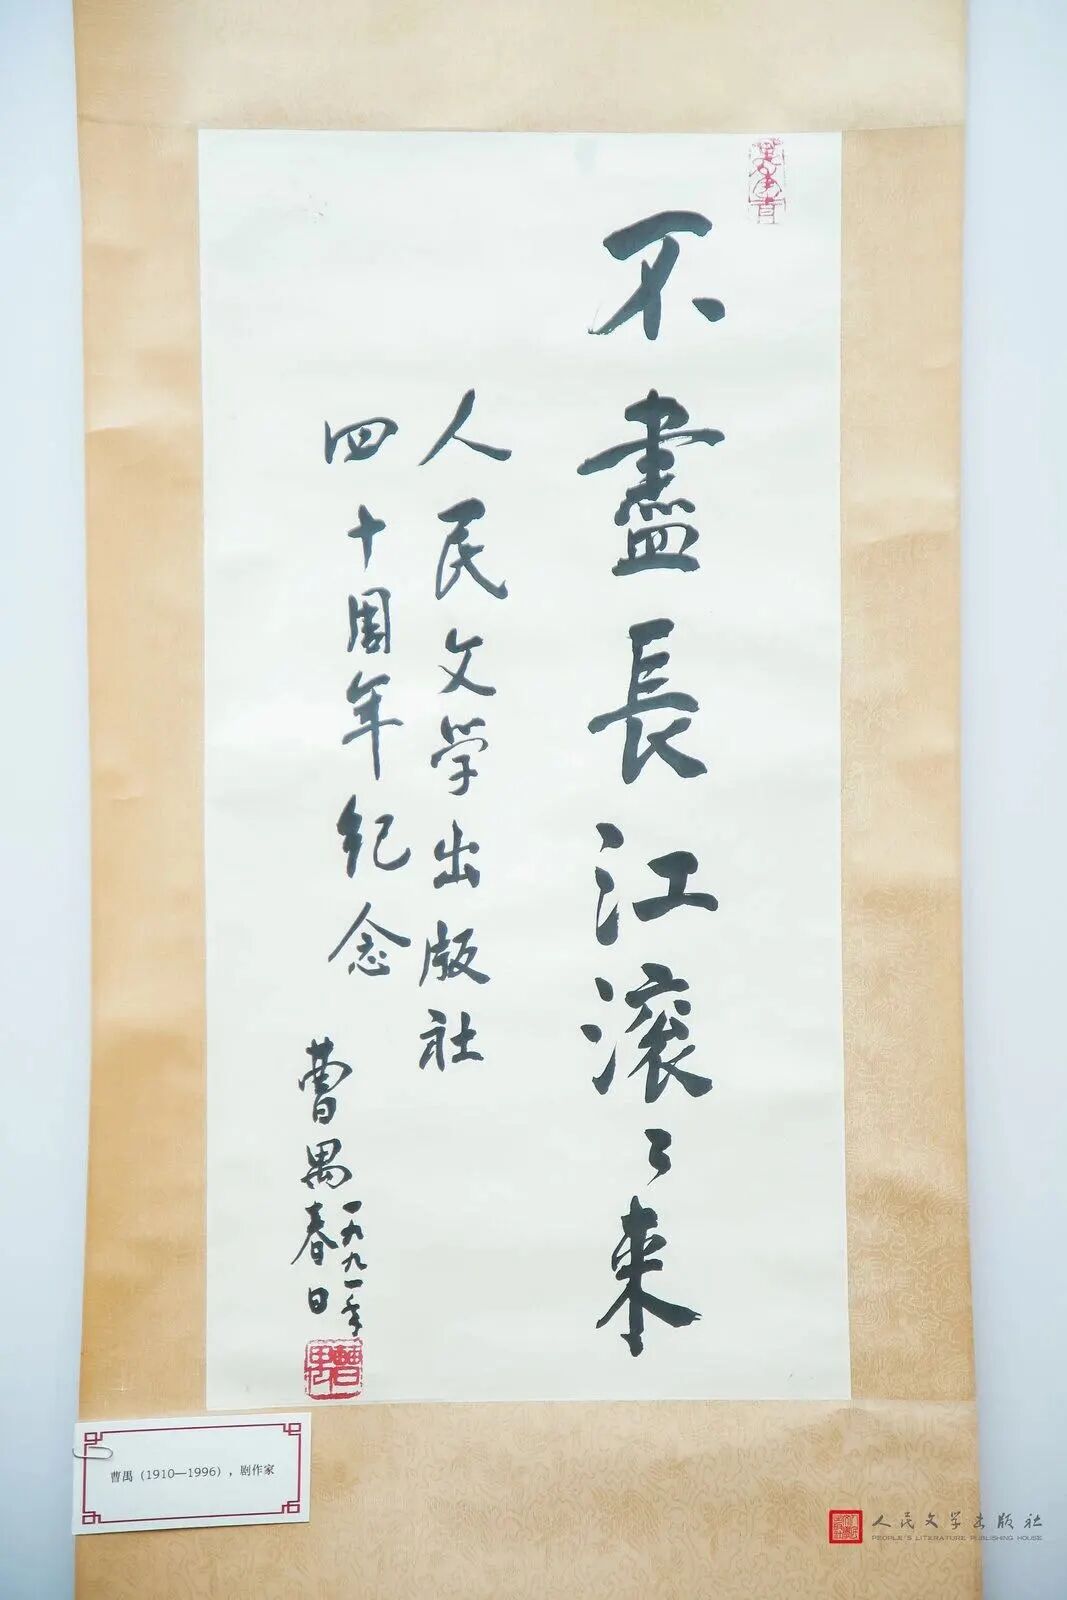 不盡長江滚〻来
人民文学出版社
四十周年纪念
曹禺
一九九一年
春日
曹禺
曹禺（1910—1996），剧作家
人民文学出版社
PEOPLE'S LITERATURE PUBLISHING HOUSE